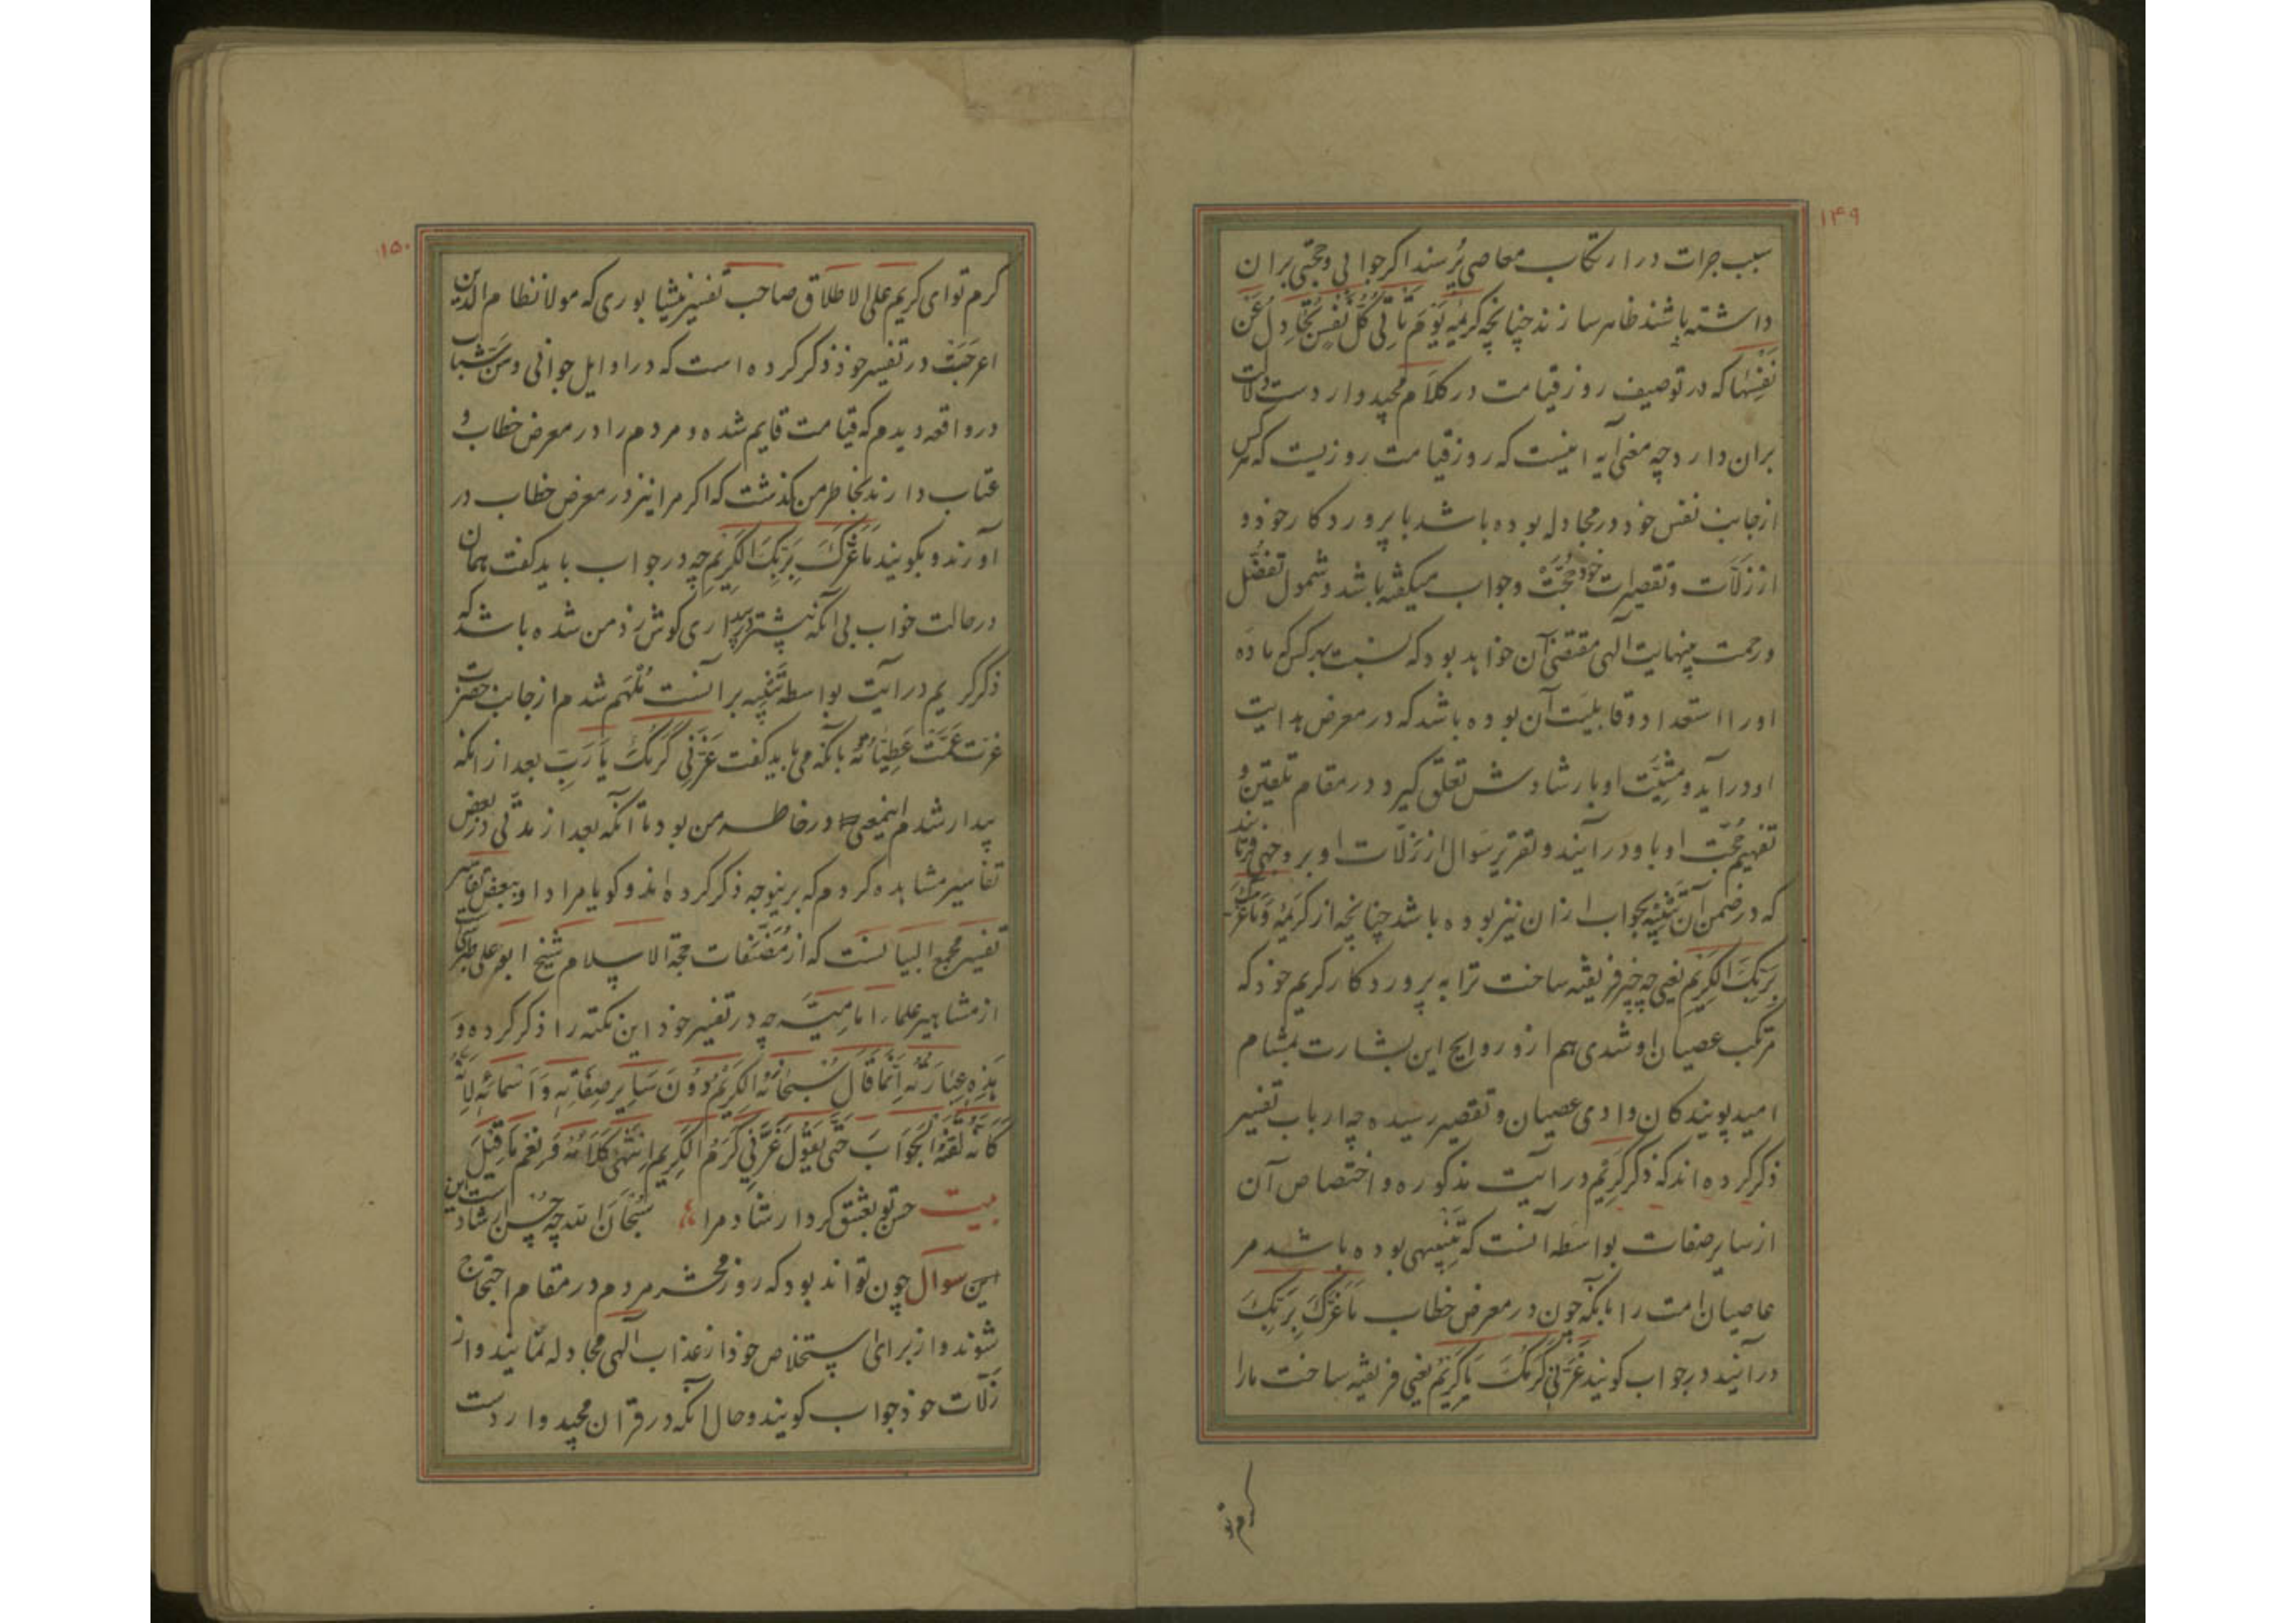 ۱۴۹
سبب جرات در ارتکاب معاصی پُرسند اکر جوابی و حجتی بران
داشته باشند ظاهر سازند چنانچه کریمهٔ یَوْمَ تَأتِی کُلُّ نَفْسٍ تُجَادِلُ عَنْ
نَفْسِهَا که در توصیف روز قیامت در کلام مجید واردست دلالت
بران دارد چه معنی آیه اینست که روز قیامت روزیست که هر کس
از جانب نفس خود در مجادله بوده باشد با پروردکار خود و
از زلّات و تقصیرات خود حجّت و جواب میکفته باشد و شمول تفضّل
و رحمت بینهایت الهی مقتضی آن خواهد بود که نسبت بهر کس که ماده
او را استعداد و قابلیت آن بوده باشد که در معرض هدایت
او درآید و مشیّت او بارشادش تعلّق کیرد در مقام تلقین و
تفهیم حُجّت او باو درآیند و تقریر سوال از زلّات او بر وجهی فرمایند
که در ضمن آن تنبیه بجواب ازان نیز بوده باشد چنانچه از کریمهٔ وَمَا غَرَّکَ
بِرَبِّکَ الکَرِیْم یعنی چه چیز فریفته ساخت ترا به پروردکار کریم خود که
مرتکب عصیان او شدی هم ازو روایح این بشارت بمشام
امید پویندکان وادی عصیان و تقصیر رسیده چه ارباب تفسیر
ذکر کرده اند که ذکر کَرِیْم در آیت مذکوره و اختصاص آن
از سایر صفات بواسطه آنست که تنبیهی بوده باشد مر
عاصیان امت را بآنکه چون در معرض خطاب مَا غَرَّکَ بِرَبِّکَ
درآیند در جواب کویند غَرَّنِی کَرَمُکَ یَا کَرِیْم یعنی فریفته ساخت مارا
کرم تو
۱۵۰
کرم تو ای کریم علی الاطلاق صاحب تفسیر نیشابوری که مولانا نظام الدین
اعرجَست در تفسیر خود ذکر کرده است که در اوایل جوانی و سنّ شباب
در واقعه دیدم که قیامت قایم شده و مردم را در معرض خطاب و
عتاب دارند بخاطر من کذشت که اکر مرا نیز در معرض خطاب در
آورند و بکویند مَا غَرَّکَ بِرَبِّکَ الکَرِیْم چه در جواب باید کفت همان
در حالت خواب بی آنکه پیشتر در بیداری کوش زد من شده باشد که
ذکر کریم در آیت بواسطه تنبیه برآنست مُلْهَم شدم از جانب حضرت
عزت عَمَّتْ عَطِیَّاتُهُ بآنکه می باید کفت غَرَّنِی کَرَمُکَ یَا رَبِّ بعد از انکه
بیدار شدم اینمعنی در خاطر من بود تا آنکه بعد از مدتی در بعض
تفاسیر مشاهده کردم که برینوجه ذکر کرده اند و کویا مراد او ببعض تفاسیر
تفسیر مجمع البیانست که از مُصَنَّفات حجة الاسلام شیخ ابو علی طبرسی
از مشاهیر علماء امامیّه چه در تفسیر خود این نکته را ذکر کرده و
هٰذِهِ عِبَارَتُهُ اِنَّمَا قَالَ سُبْحَانَهُ الکَرِیْمُ دُوْنَ سَایِرِ صِفَاتِهِ وَاَسْمَائِهِ لِاَنَّهُ
کَاَنَّهُ لَقَّنَهُ الْجَوَابَ حَتّٰی یَقُوْلَ غَرَّنِی کَرَمُ الْکَرِیم اِنْتَهٰی کَلَامُهُ فَنِعْمَ مَا قِیْلَ
بیت حسن تو بعشق کرد ارشاد مرا سُبْحَانَ اللّٰه چه حُسْن ارشادست این
این سوال چون تواند بود که روز محشر مردم در مقام احتجاج
شوند و از برای استخلاص خود از عذاب الهی مجادله نمایند و از
زلّات خود جواب کویند و حال آنکه در قرآن مجید واردست